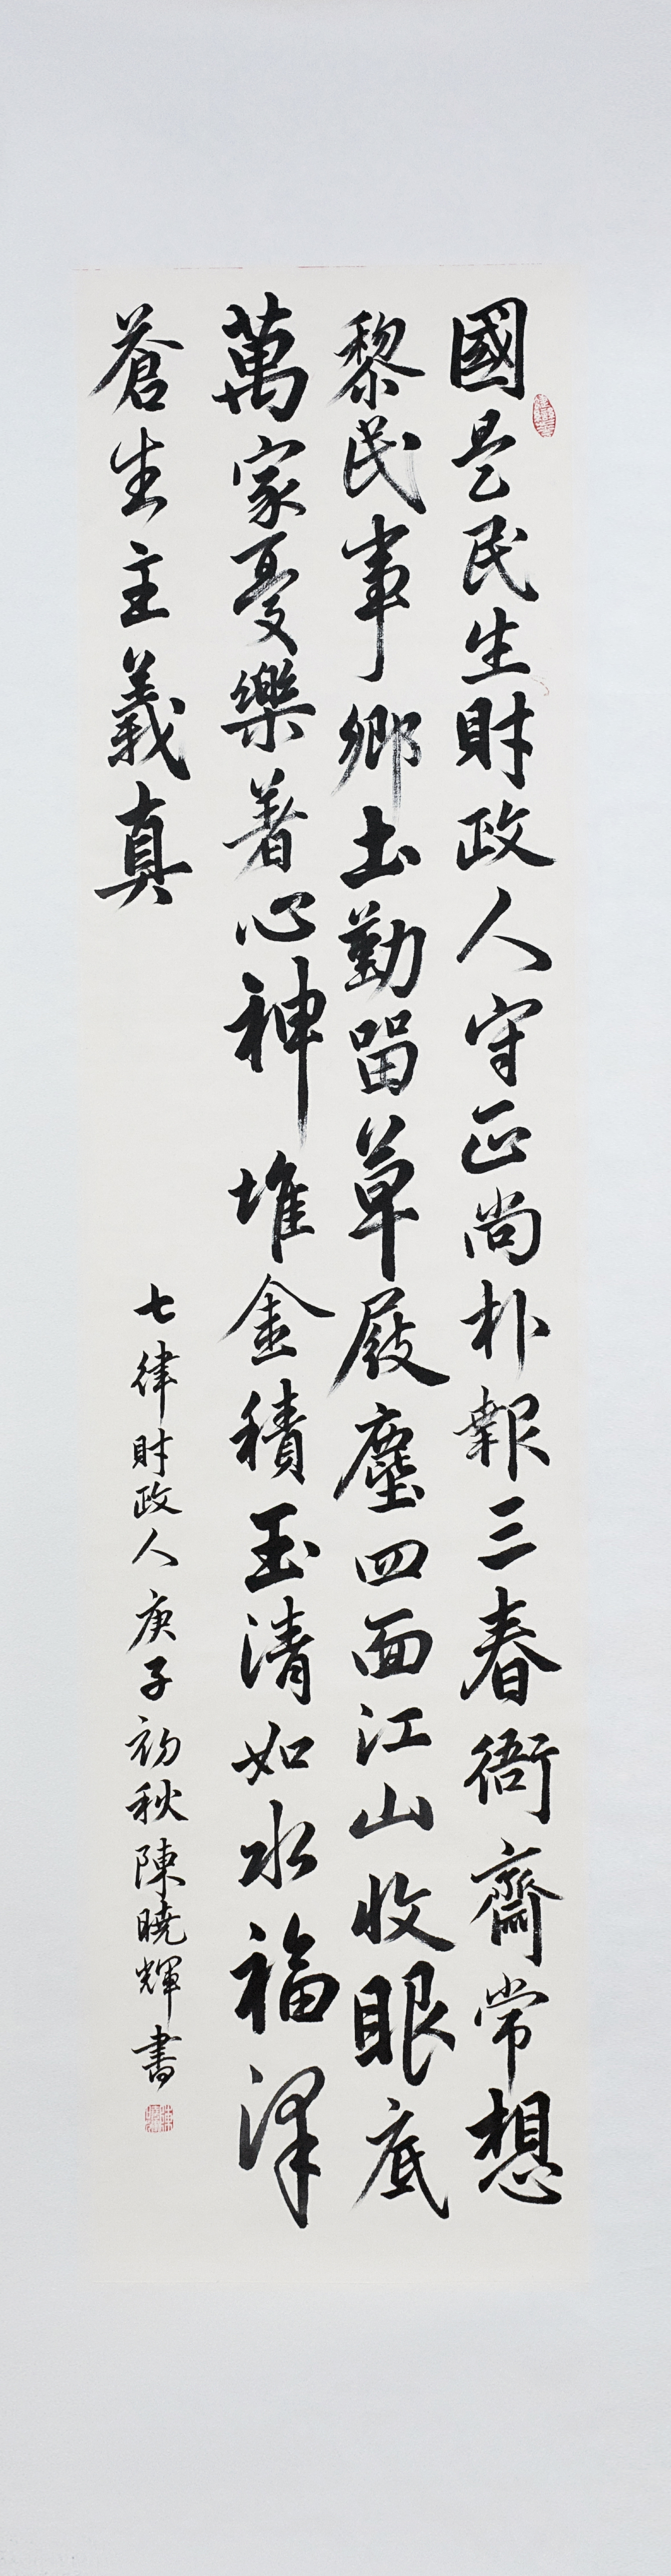 國是民生財政人守正尚朴報三春衙齋常想
黎民事鄉土勤留草屐塵四面江山收眼底
萬家憂樂著心神堆金積玉清如水福澤
蒼生主義真
七律財政人庚子初秋陳曉輝書